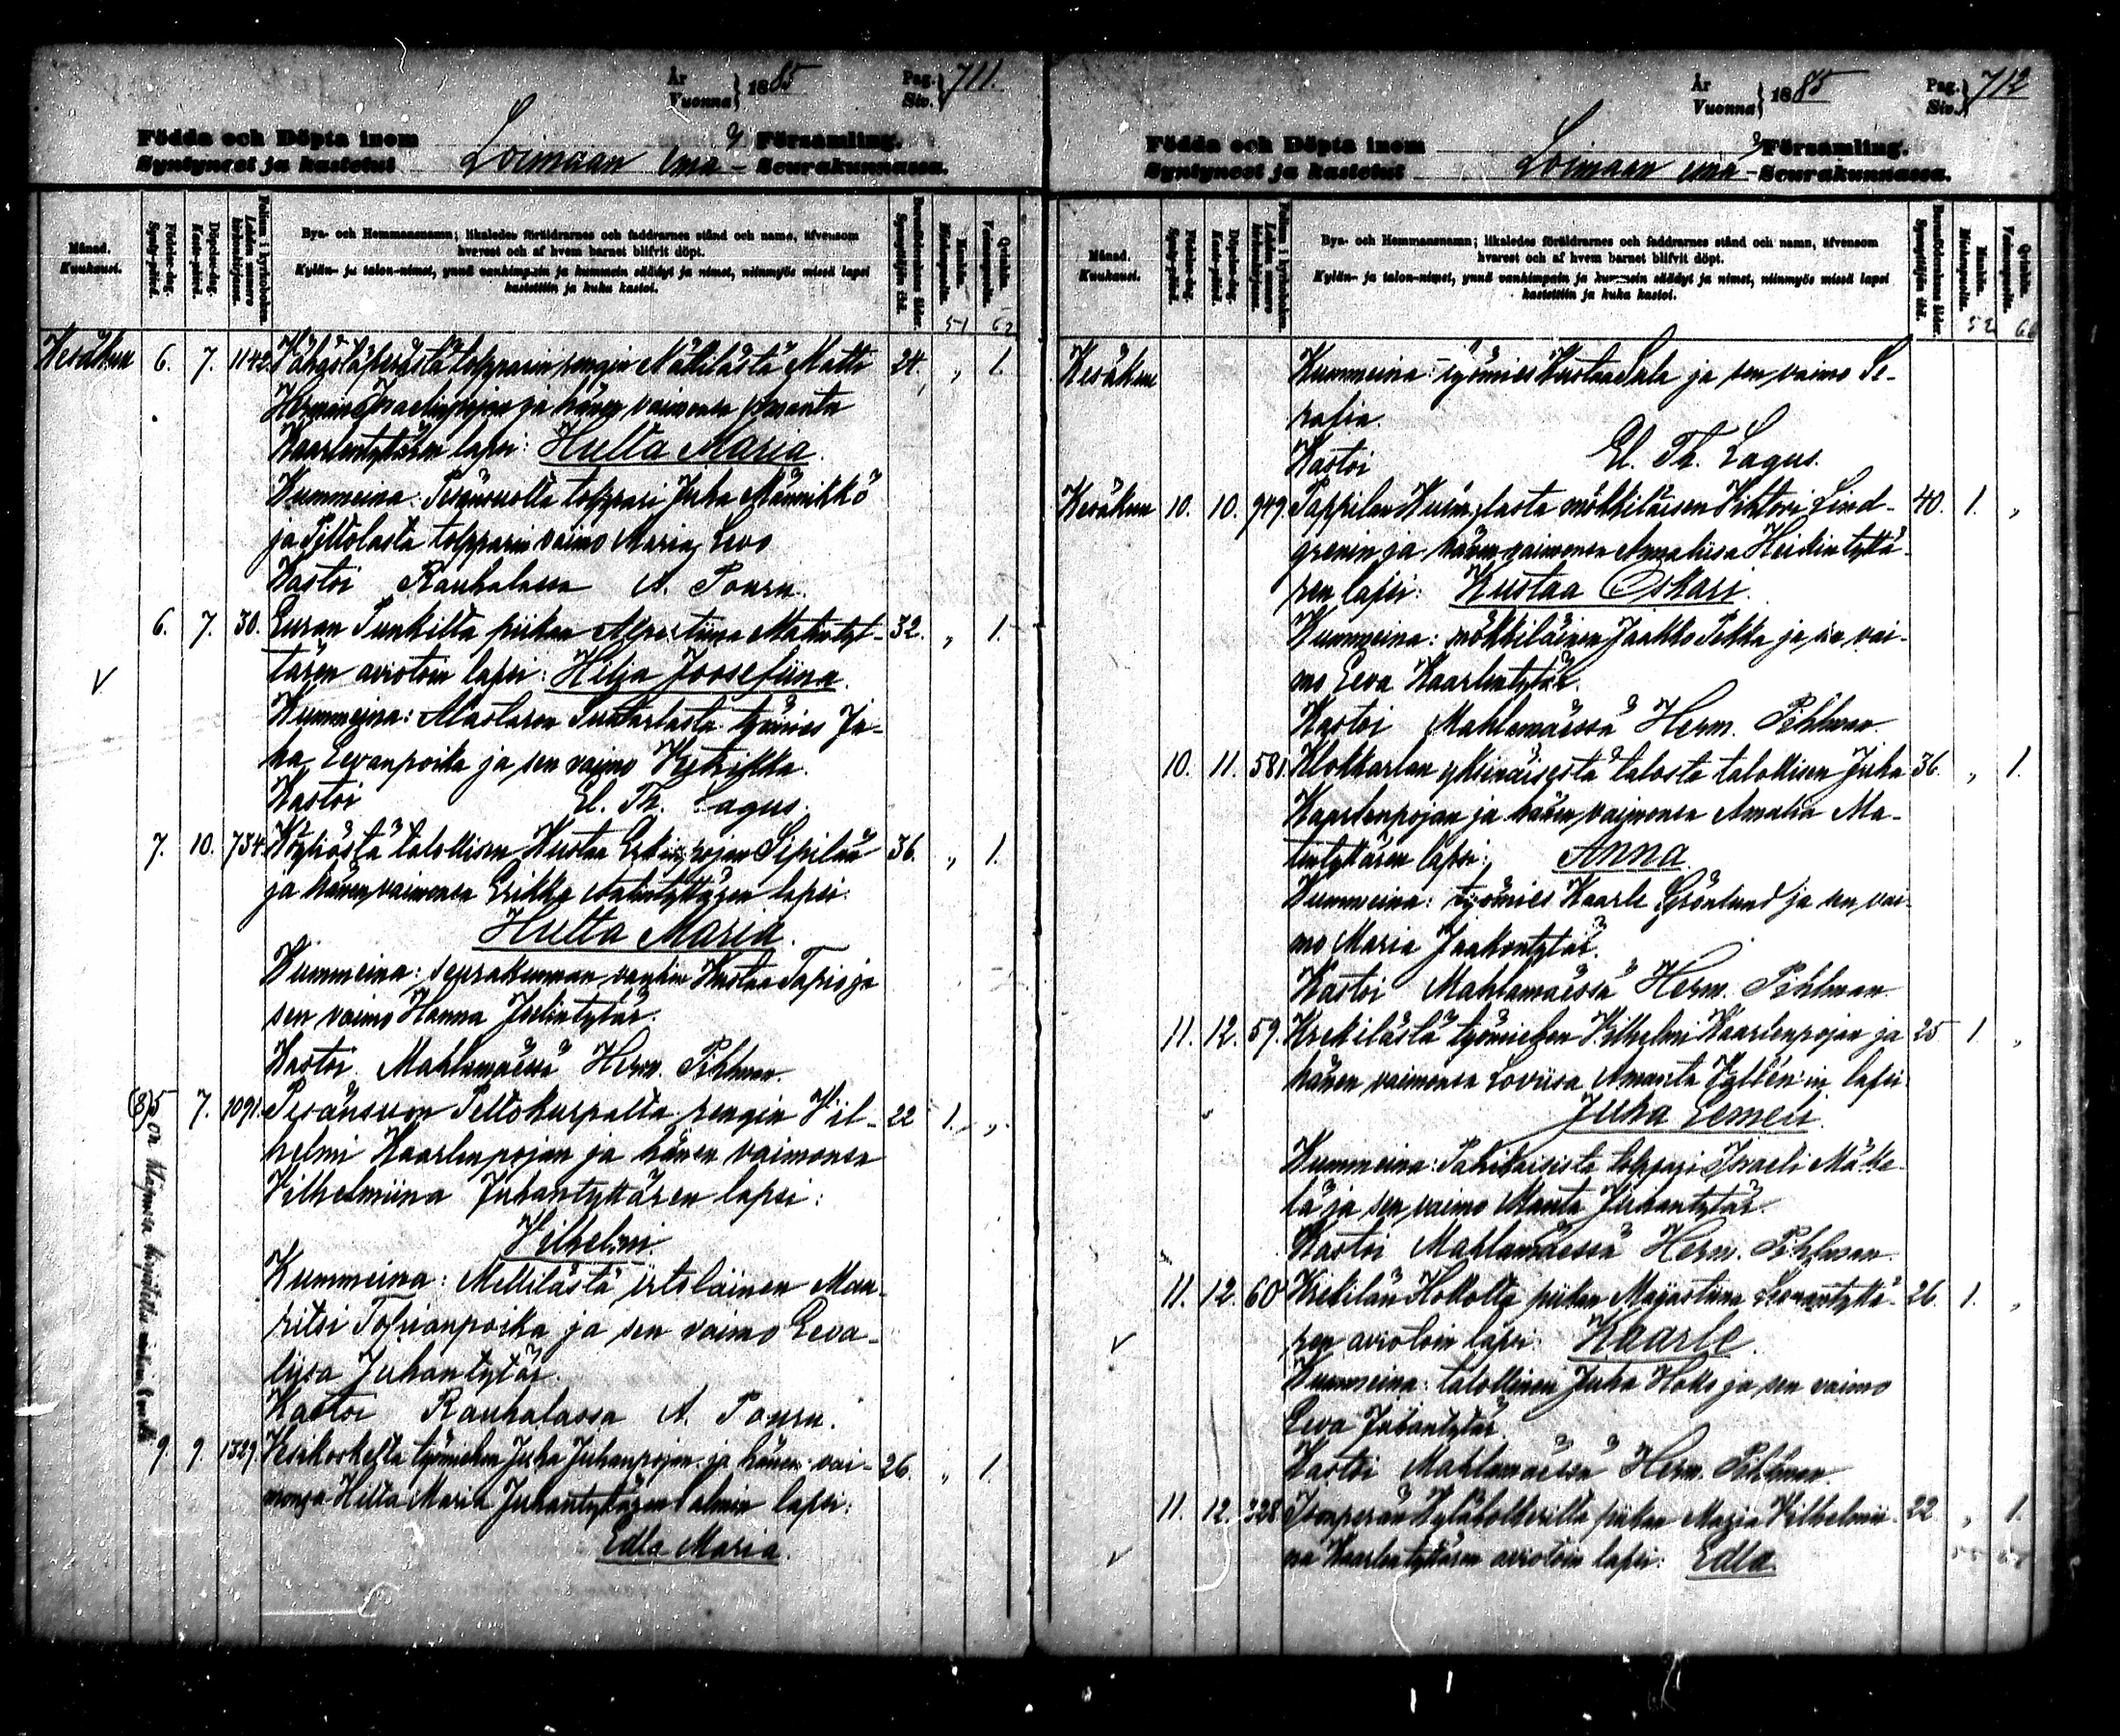 År
Vuonna } 1885
Pag.
Siv. } 711.
Födda och Döpta inom Församling.
Syntyneet ja kastetut Loimaan ema- Seurakunnassa.
Månad.
Kuukausi.
Födelse-dag.
Synty-päivä.
Döpelse-dag.
Kaste-päivä.
Bya- och Hemmansnamn; likaledes föräldrarnes och faddrarnes stånd och namn, äfvensom
hvarest och af hvem barnet blifvit döpt.
Kylän- ja talon-nimet, ynnä vanhimpain ja kummein säädyt ja nimet, niinmyös missä lapsi
kastettiin ja kuka kastoi.
Barnföderskans ålder.
Synnyttäjän ikä.
Mankön.
Miehenpuolta.
Qvinkön.
Vaimonpuolta.
51 62
Kesäkuu 6. 7. 1142. torpparin rengin Mattilästä Matti 24. „ 1.
Herman Israelinpojan ja hänen vaimonsa Amanta
Kaarlentyttären lapsi: Hilta Maria.
Kummeina: Pesänsuolta torppari Juha Männikkö
ja Peltolasta torpparin vaimo Maria Levo
Kastoi Rauhalassa A. Pouru.
6. 7. 30. Euran Punkilta piikan Albertiina Matintyt- 32. „ 1.
tären aviotoin lapsi: Hilja Joosefiina.
Kummeina: Alastaron työmies Ju-
ha Eevanpoika ja sen vaimo
Kastoi El. Th. Lagus.
7. 10. 734. talollisen Kustaa Erkinpojan Sipilän 36. „ 1.
ja hänen vaimonsa Erikka Antintyttären lapsi:
Hilta Maria.
Kummeina: seurakunnan vanhin Kustaa Tapio ja
sen vaimo Hanna Juhintytär.
Kastoi Mahlamäessä Herm. Pihlman.
(8) 5 7. 1091. Pesänsuon Peltokurpalta rengin Vil- 22 1. „
helmi Kaarlenpojan ja hänen vaimonsa
Vilhelmiina Juhantyttären lapsi:
Vilhelmi.
Kummeina: Mellilästä irtolainen Mau-
ritsi Topianpoika ja sen vaimo Eeva-
liisa Juhantytär.
Kastoi Rauhalassa A. Pouru.
9. 9. 1329. Vesikoskelta työmiehen Juha Juhanpojan ja hänen vai- 26. „ 1.
monsa Hilta Maria Juhantyttären Salmin lapsi:
Edla Maria.
År
Vuonna } 1885
Pag.
Siv. } 712
Födda och Döpta inom Församling.
Syntyneet ja kastetut Loimaan ema- Seurakunnassa.
Månad.
Kuukausi.
Födelse-dag.
Synty-päivä.
Döpelse-dag.
Kaste-päivä.
Bya- och Hemmansnamn; likaledes föräldrarnes och faddrarnes stånd och namn, äfvensom
hvarest och af hvem barnet blifvit döpt.
Kylän- ja talon-nimet, ynnä vanhimpain ja kummein säädyt ja nimet, niinmyös missä lapsi
kastettiin ja kuka kastoi.
Barnföderskans ålder.
Synnyttäjän ikä.
Mankön.
Miehenpuolta.
Qvinkön.
Vaimonpuolta.
52
Kesäkuu Kummeina: työmies Kustaa Sula ja sen vaimo Se-
rafia.
Kastoi El. Th. Lagus.
Kesäkuu 10. 10. 949. Pappilan mökkiläisen Vihtori Lind- 40. 1. „
grenin ja hänen vaimonsa Annaliisa Heikintyttä-
ren lapsi: Kustaa Oskari.
Kummeina: mökkiläinen Jaakko Pekka ja sen vai-
mo Eeva Kaarlentytär.
Kastoi Mahlamäessä Herm. Pihlman.
10. 11. 581. Klokkarlan yksinäisestä talosta talollisen Juha 36. „ 1.
Kaarlenpojan ja hänen vaimonsa Amalia Ma-
tintyttären lapsi: Anna.
Kummeina: työmies Kaarle Grönlund ja sen vai-
mo Maria Jaakontytär.
Kastoi Mahlamäessä Herm. Pihlman.
11. 12. 59. Krekilästä työmiehen Vilhelmi Kaarlenpojan ja 25 1. „
hänen vaimonsa Loviisa Amanta in lapsi
Juha Eemeli.
Kummeina: torppari Israeli Mäke-
lä ja sen vaimo Manta Juhantytär.
Kastoi Mahlamäessä Herm. Pihlman.
11. 12. 60 Krekilän Hokolta piikan Majastiina 26. 1. „
ren aviotoin lapsi: Kaarle.
Kummeina: talollinen Juha Hoko ja sen vaimo
Eeva Juhantytär.
Kastoi Mahlamäessä Herm. Pihlman
11. 12. 328. Joenperän piikan Maria Vilhelmii- 22. „ 1.
na Kaarlentyttären aviotoin lapsi: Edla.